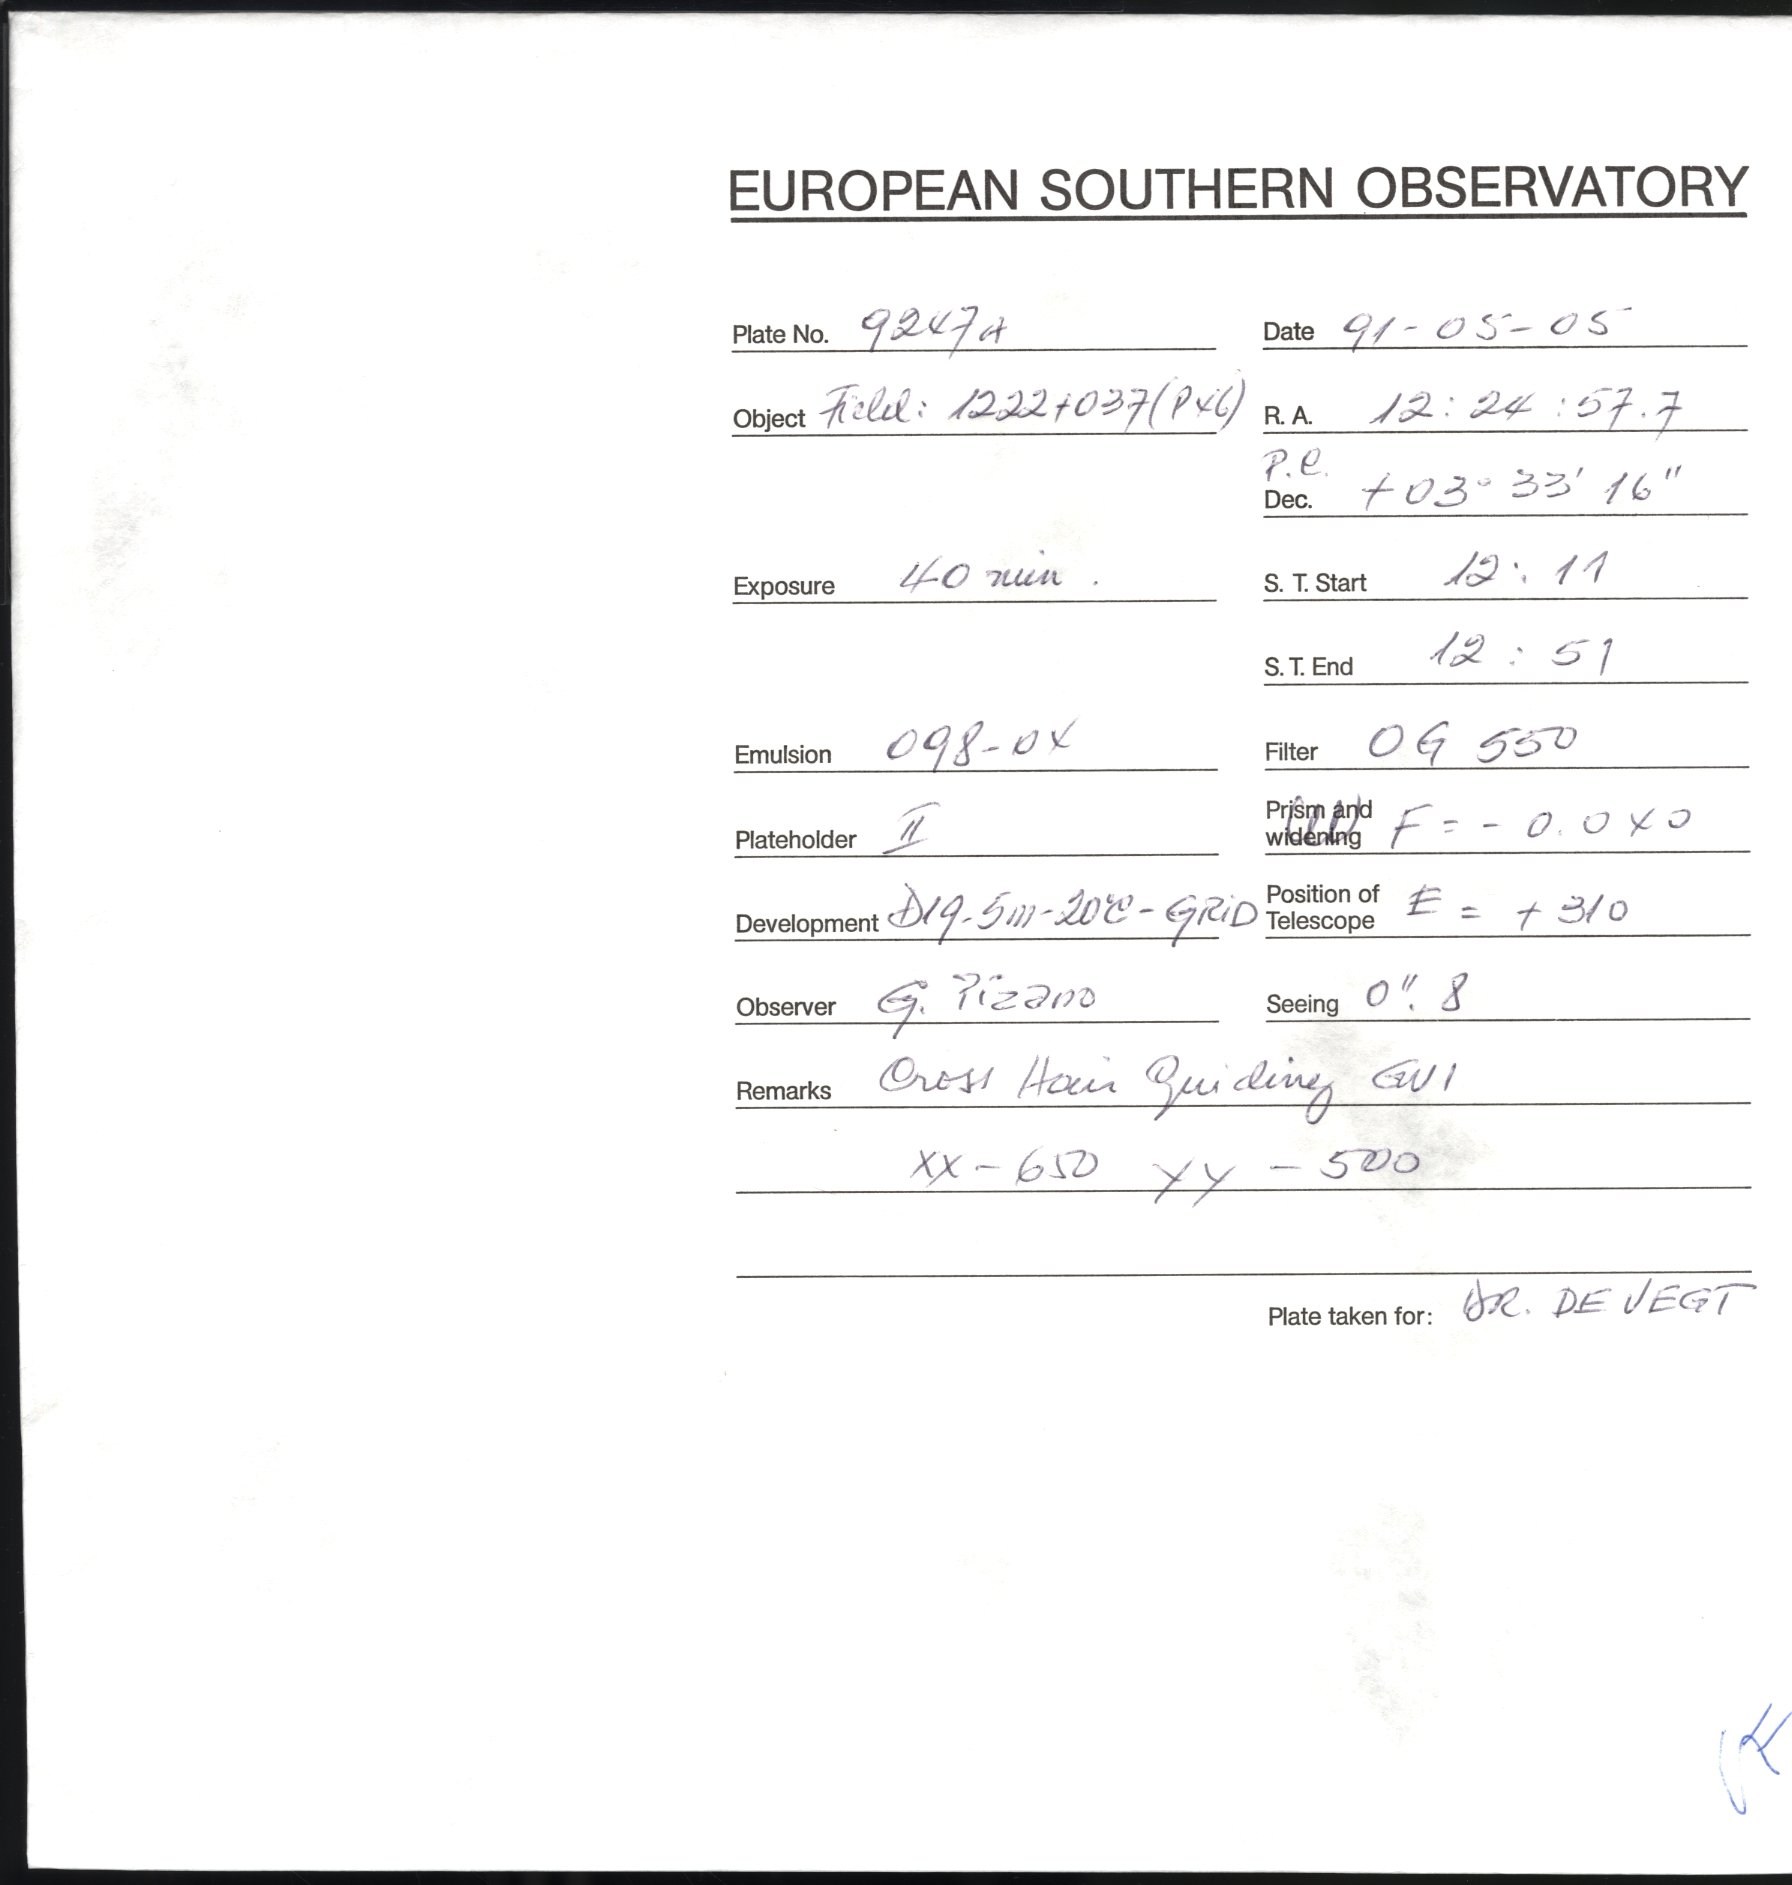 EUROPEAN SOUTHERN OBSERVATORY
Plate No. 9247A Date 91-05-05
Object Field: 1222+037 R. A. 12:24:57.7
P.C.
Dec. +03° 33' 16"
Exposure 40 min. S. T. Start 12:11
S. T. End 12:51
Emulsion 098-04 Filter OG 550
Plateholder II Prism and widening F = - 0.040
Development D19-5m-20°C-GRID Position of Telescope E = + 310
Observer G. Pizarro Seeing 0".8
Remarks Cross Hair Guiding
XX - 650 YY - 500
Plate taken for: DR. DE VEGT